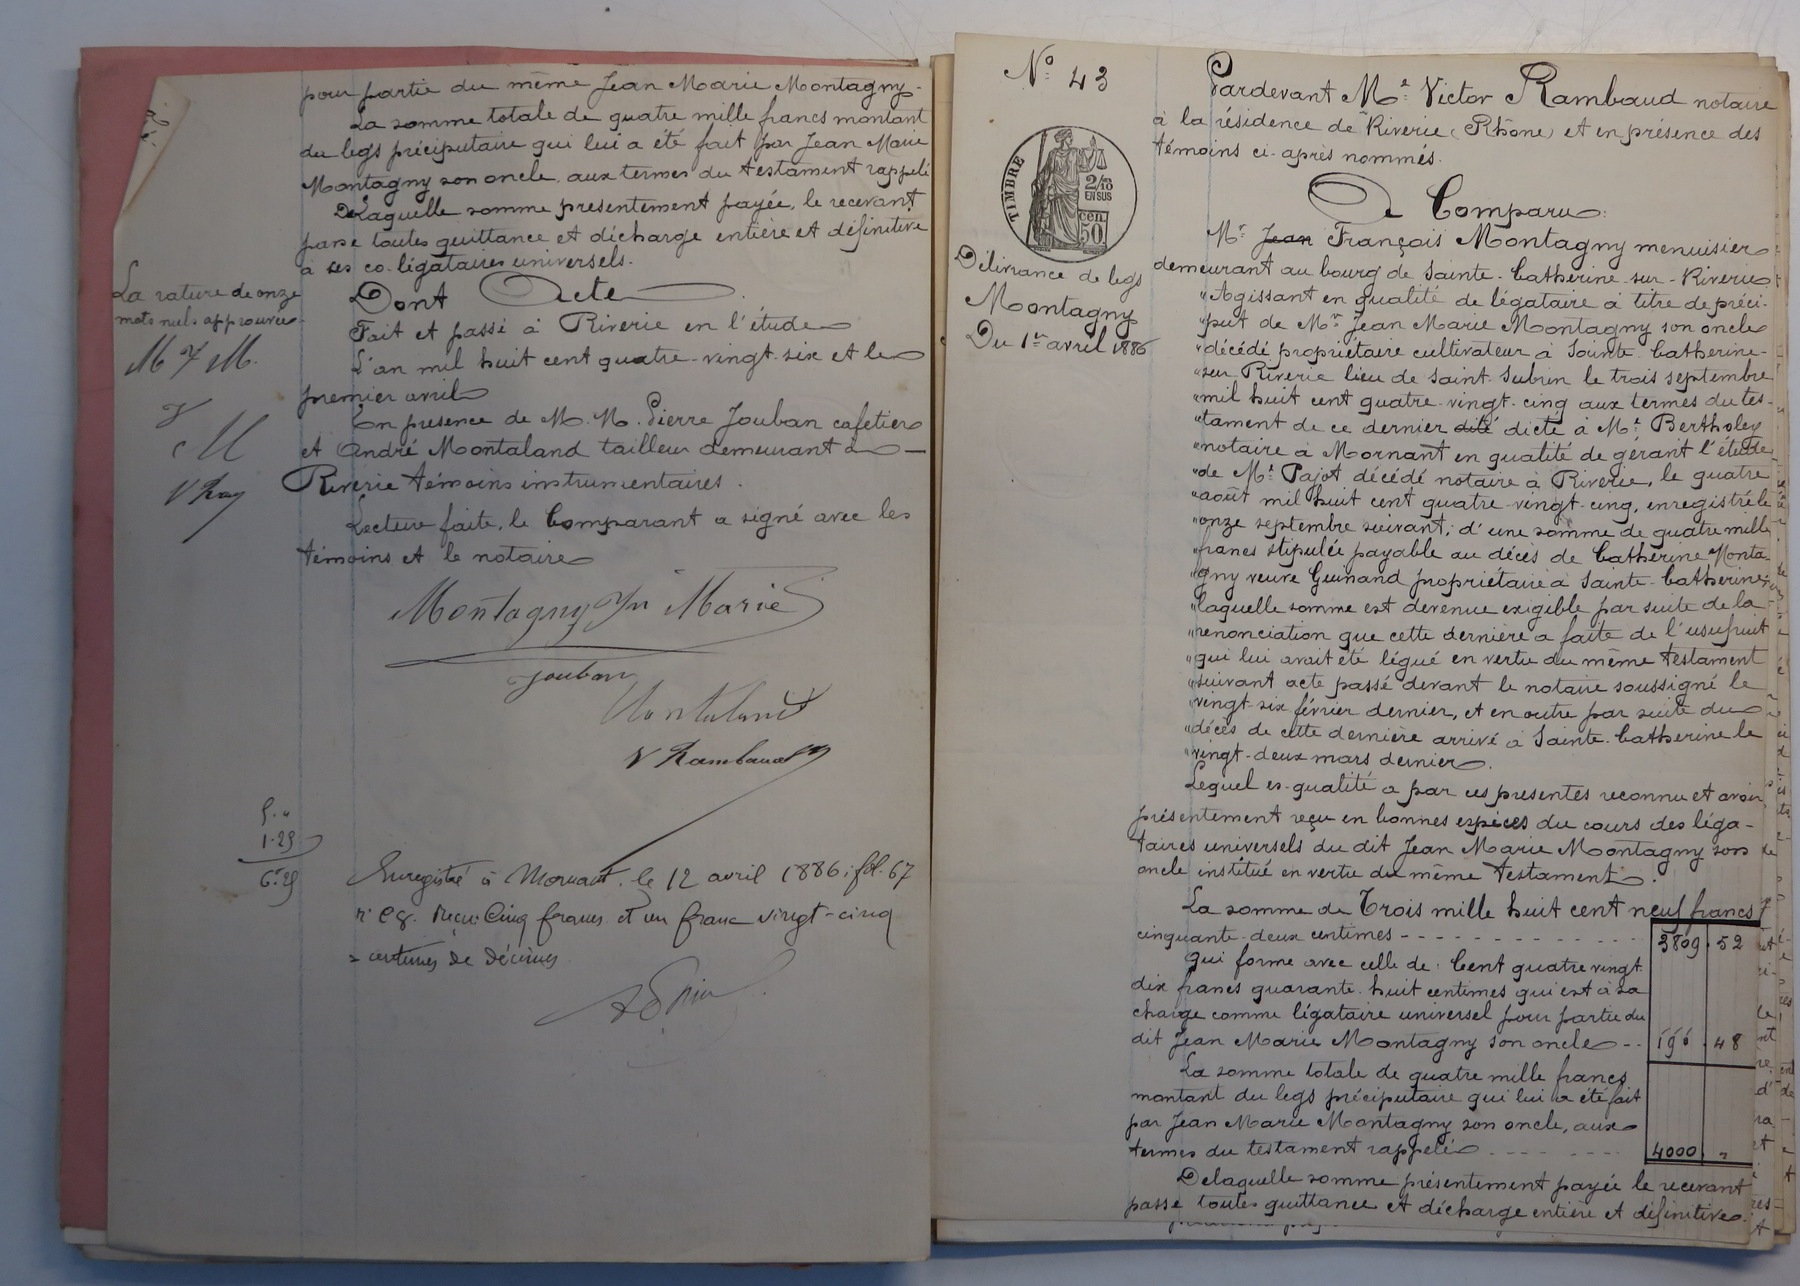 pour partie du même Jean Marie Montagny.
La somme totale de quatre mille francs montant
du legs préciputaire qui lui a été fait par Jean Marie
Montagny son oncle aux termes du testament rappelé
De Laquelle somme présentement payée, le recevant
passe toutes quittance et décharge entière et définitive
à ses co-légataires universels.
La rature de onze
mots nuls approuvée
M F M.
J
M
V Ray
Dont Acte
Fait et passé à Riverie en l'étude
L'an mil huit cent quatre-vingt-six et le
premier avril
En présence de M.M. Pierre Jouban cafetier
et André Montaland tailleur demeurant à
Riverie témoins instrumentaires.
Lecture faite, le Comparant a signé avec les
témoins et le notaire
Montagny Marie
Jouban
Montaland
V Rambaud
5. "
1.25
6.25
Enregistré à Mornant, le 12 avril 1886, fol. 67
Reçu: Cinq francs et un franc vingt-cinq
centimes de décimes
No 43
TIMBRE
2/10
EN SUS
cen.
50
Délivrance de legs
Montagny
Du 1er avril 1886
Pardevant Me Victor Rambaud notaire
à la résidence de Riverie (Rhône) et en présence des
témoins ci-après nommés.
A Comparu:
Mr Jean François Montagny menuisier
demeurant au bourg de Sainte-Catherine-sur-Riverie
"Agissant en qualité de légataire à titre de préci-
"put de Mr Jean Marie Montagny son oncle
"décédé propriétaire cultivateur à Sainte Catherine-
"sur Riverie lieu de Saint-Subrin le trois septembre
"mil huit cent quatre-vingt-cinq aux termes du tes-
"tament de ce dernier dité dicté à Me Bertholey
"notaire à Mornant en qualité de gérant l'étude
"de Me Pajot décédé notaire à Riverie, le quatre
"août mil huit cent quatre-vingt-cinq, enregistré le
"onze septembre suivant; d'une somme de quatre mille
"francs stipulée payable au décès de Catherine Monta-
"gny veuve Guinand propriétaire à Sainte-Catherine,
"laquelle somme est devenue exigible par suite de la
"renonciation que cette dernière a faite de l'usufruit
"qui lui avait été légué en vertu du même testament
"suivant acte passé devant le notaire soussigné le
"vingt-six février dernier, et en outre par suite du
"décès de cette dernière arrivé à Sainte-Catherine le
"vingt-deux mars dernier.
Lequel es-qualité a par ces présentes reconnu et avoir
présentement reçu en bonnes espèces du cours des léga-
taires universels du dit Jean Marie Montagny son
oncle institué en vertu du même testament.
La somme de Trois mille huit cent neuf francs
cinquante-deux centimes - - - 3809.52
Qui forme avec celle de: Cent quatre vingt
dix francs quarante-huit centimes qui est à sa
charge comme légataire universel pour partie du
dit Jean Marie Montagny son oncle - - 190.48
La somme totale de quatre mille francs
montant du legs préciputaire qui lui a été fait
par Jean Marie Montagny son oncle, aux
termes du testament rappelé - - - 4000 "
De laquelle somme présentement payée le recevant
passe toutes quittance et décharge entière et définitive.